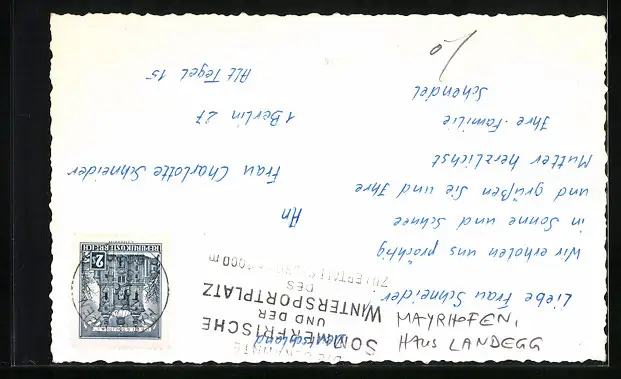 MAYRHOFEN,
HAUS LANDEGG
Liebe Frau Schneider
Wir erholen uns prächtig
in Sonne und Schnee
und grüßen Sie und Ihre
Mutter herzlichst
Ihre Familie
Schendel
DIE BEKANNTE
SOMMERFRISCHE
UND DER
WINTERSPORTPLATZ
DES
ZILLERTALES
REPUBLIK ÖSTERREICH
2
An
Frau Charlotte Schneider
1 Berlin 27
Alt Tegel 15
Deutschland